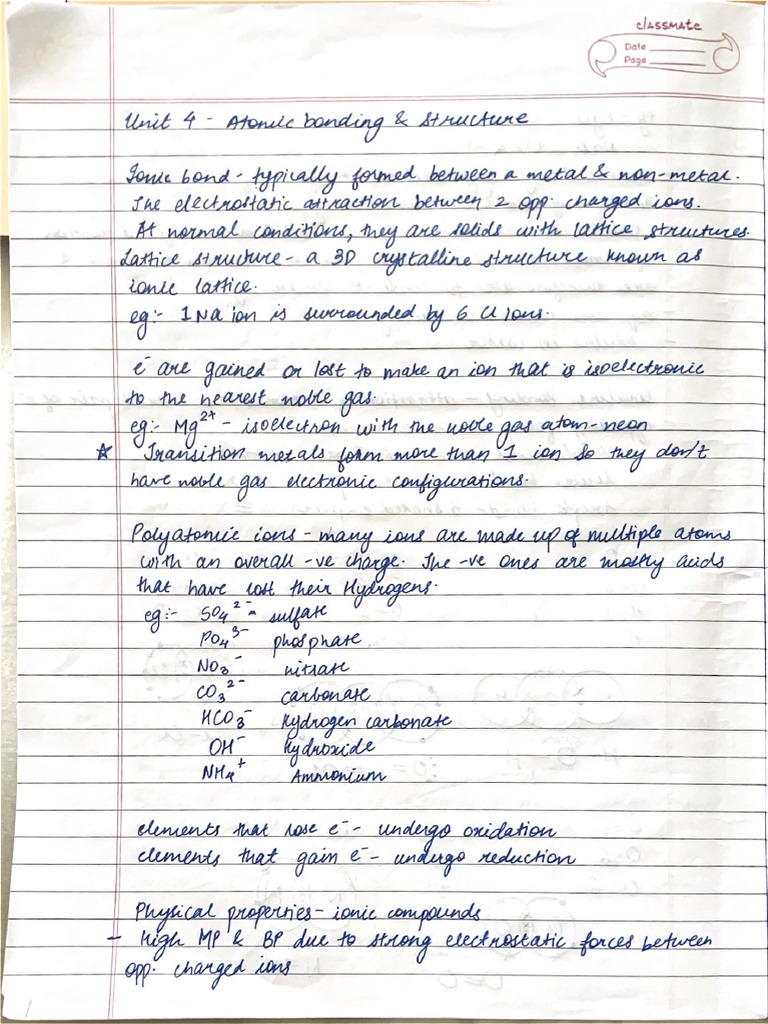 classmate
Date
Page
Unit 4 - Atomic bonding & structure
Ionic bond - typically formed between a metal & non-metal.
The electrostatic attraction between 2 opp. charged ions.
At normal conditions, they are solids with lattice structures.
Lattice structure - a 3D crystalline structure known as
ionic lattice.
eg:- 1 Na ion is surrounded by 6 Cl ions.
e⁻ are gained or lost to make an ion that is isoelectronic
to the nearest noble gas.
eg:- Mg²⁺ - isoelectron with the noble gas atom - neon
☆ Transition metals form more than 1 ion so they don't
have noble gas electronic configurations.
Polyatomic ions - many ions are made up of multiple atoms
with an overall -ve charge. The -ve ones are mostly acids
that have lost their Hydrogens.
eg:- SO₄²⁻ - sulfate
PO₄³⁻ phosphate
NO₃⁻ nitrate
CO₃²⁻ carbonate
HCO₃⁻ Hydrogen carbonate
OH⁻ Hydroxide
NH₄⁺ Ammonium
elements that lose e⁻ - undergo oxidation
elements that gain e⁻ - undergo reduction
Physical properties - ionic compounds
- High MP & BP due to strong electrostatic forces between
opp. charged ions